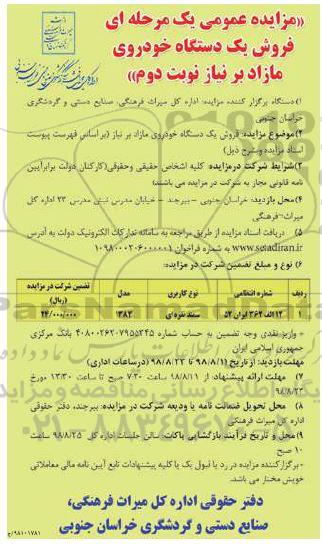 «مزایده عمومی یک مرحله ای
فروش یک دستگاه خودروی
مازاد بر نیاز نوبت دوم»
۱) دستگاه برگزار کننده مزایده: اداره کل میراث فرهنگی، صنایع دستی و گردشگری
خراسان جنوبی
۲) موضوع مزایده: فروش یک دستگاه خودروی مازاد بر نیاز (بر اساس فهرست پیوست
اسناد مزایده وبشرح ذیل)
۳) شرایط شرکت درمزایده: کلیه اشخاص حقیقی وحقوقی(کارکنان دولت برابرآیین
نامه قانونی مجاز به شرکت در مزایده می باشند)
۴) محل بازدید: خراسان جنوبی - بیرجند - خیابان مدرس نبش مدرس ۲۳ اداره کل
میراث فرهنگی
۵) دریافت اسناد مزایده از طریق مراجعه به سامانه تدارکات الکترونیک دولت به آدرس
www.setadiran.ir به شماره فراخوان ۱۰۹۸۰۰۰۲۰۶۰۰۰۰۰۱
۶) نوع و مبلغ تضمین شرکت در مزایده:
ردیف شماره انتظامی نوع کاربری مدل تضمین شرکت در مزایده (ریال)
۱ ۱۲ الف ۳۶۴ ایران ۵۲ سمند نقره ای ۱۳۸۳ ۱۴/۰۰۰/۰۰۰
- واریز نقدی وجه تضمین به حساب شماره ۴۰۸۰۰۲۶۲۰۷۹۵۵۳۴۵ بانک مرکزی
جمهوری اسلامی ایران
مهلت بازدید: از تاریخ ۹۸/۸/۱۱ تا ۹۸/۸/۲۲ (درساعات اداری)
۷) مهلت ارائه پیشنهاد: از ۹۸/۸/۱۱ ساعت ۷:۳۰ صبح تا ساعت ۱۳:۳۰ مورخ
۹۸/۸/۲۳
۸) محل تحویل ضمانت نامه یا ودیعه شرکت در مزایده: بیرجند، دفتر حقوقی
اداره کل میراث فرهنگی
۹) محل و تاریخ فرآیند بازگشایی پاکات: سالن جلسات اداره کل ۹۸/۸/۲۵ ساعت
۱۰ صبح
- برگزارکننده مزایده در رد یا قبول یک یا کلیه پیشنهادات تابع آیین نامه مالی معاملاتی
خویش مختار می باشد.
دفتر حقوقی اداره کل میراث فرهنگی،
صنایع دستی و گردشگری خراسان جنوبی
۹۸۱۰۱۷۸۱/خ